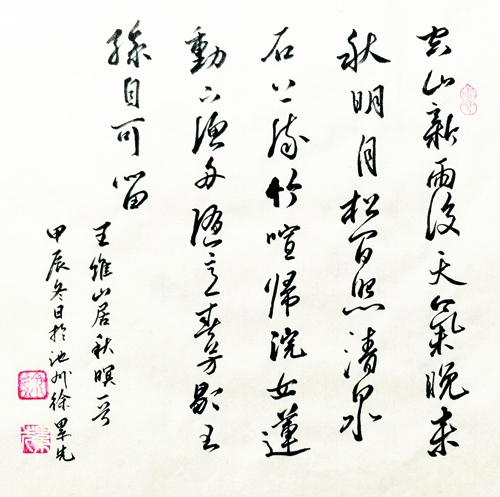 空山新雨後天氣晚来
秋明月松间照清泉
石上流竹喧帰浣女蓮
動下渔舟随意春芳歇王
孫自可留
王維山居秋暝一首
甲辰冬日於池州徐先